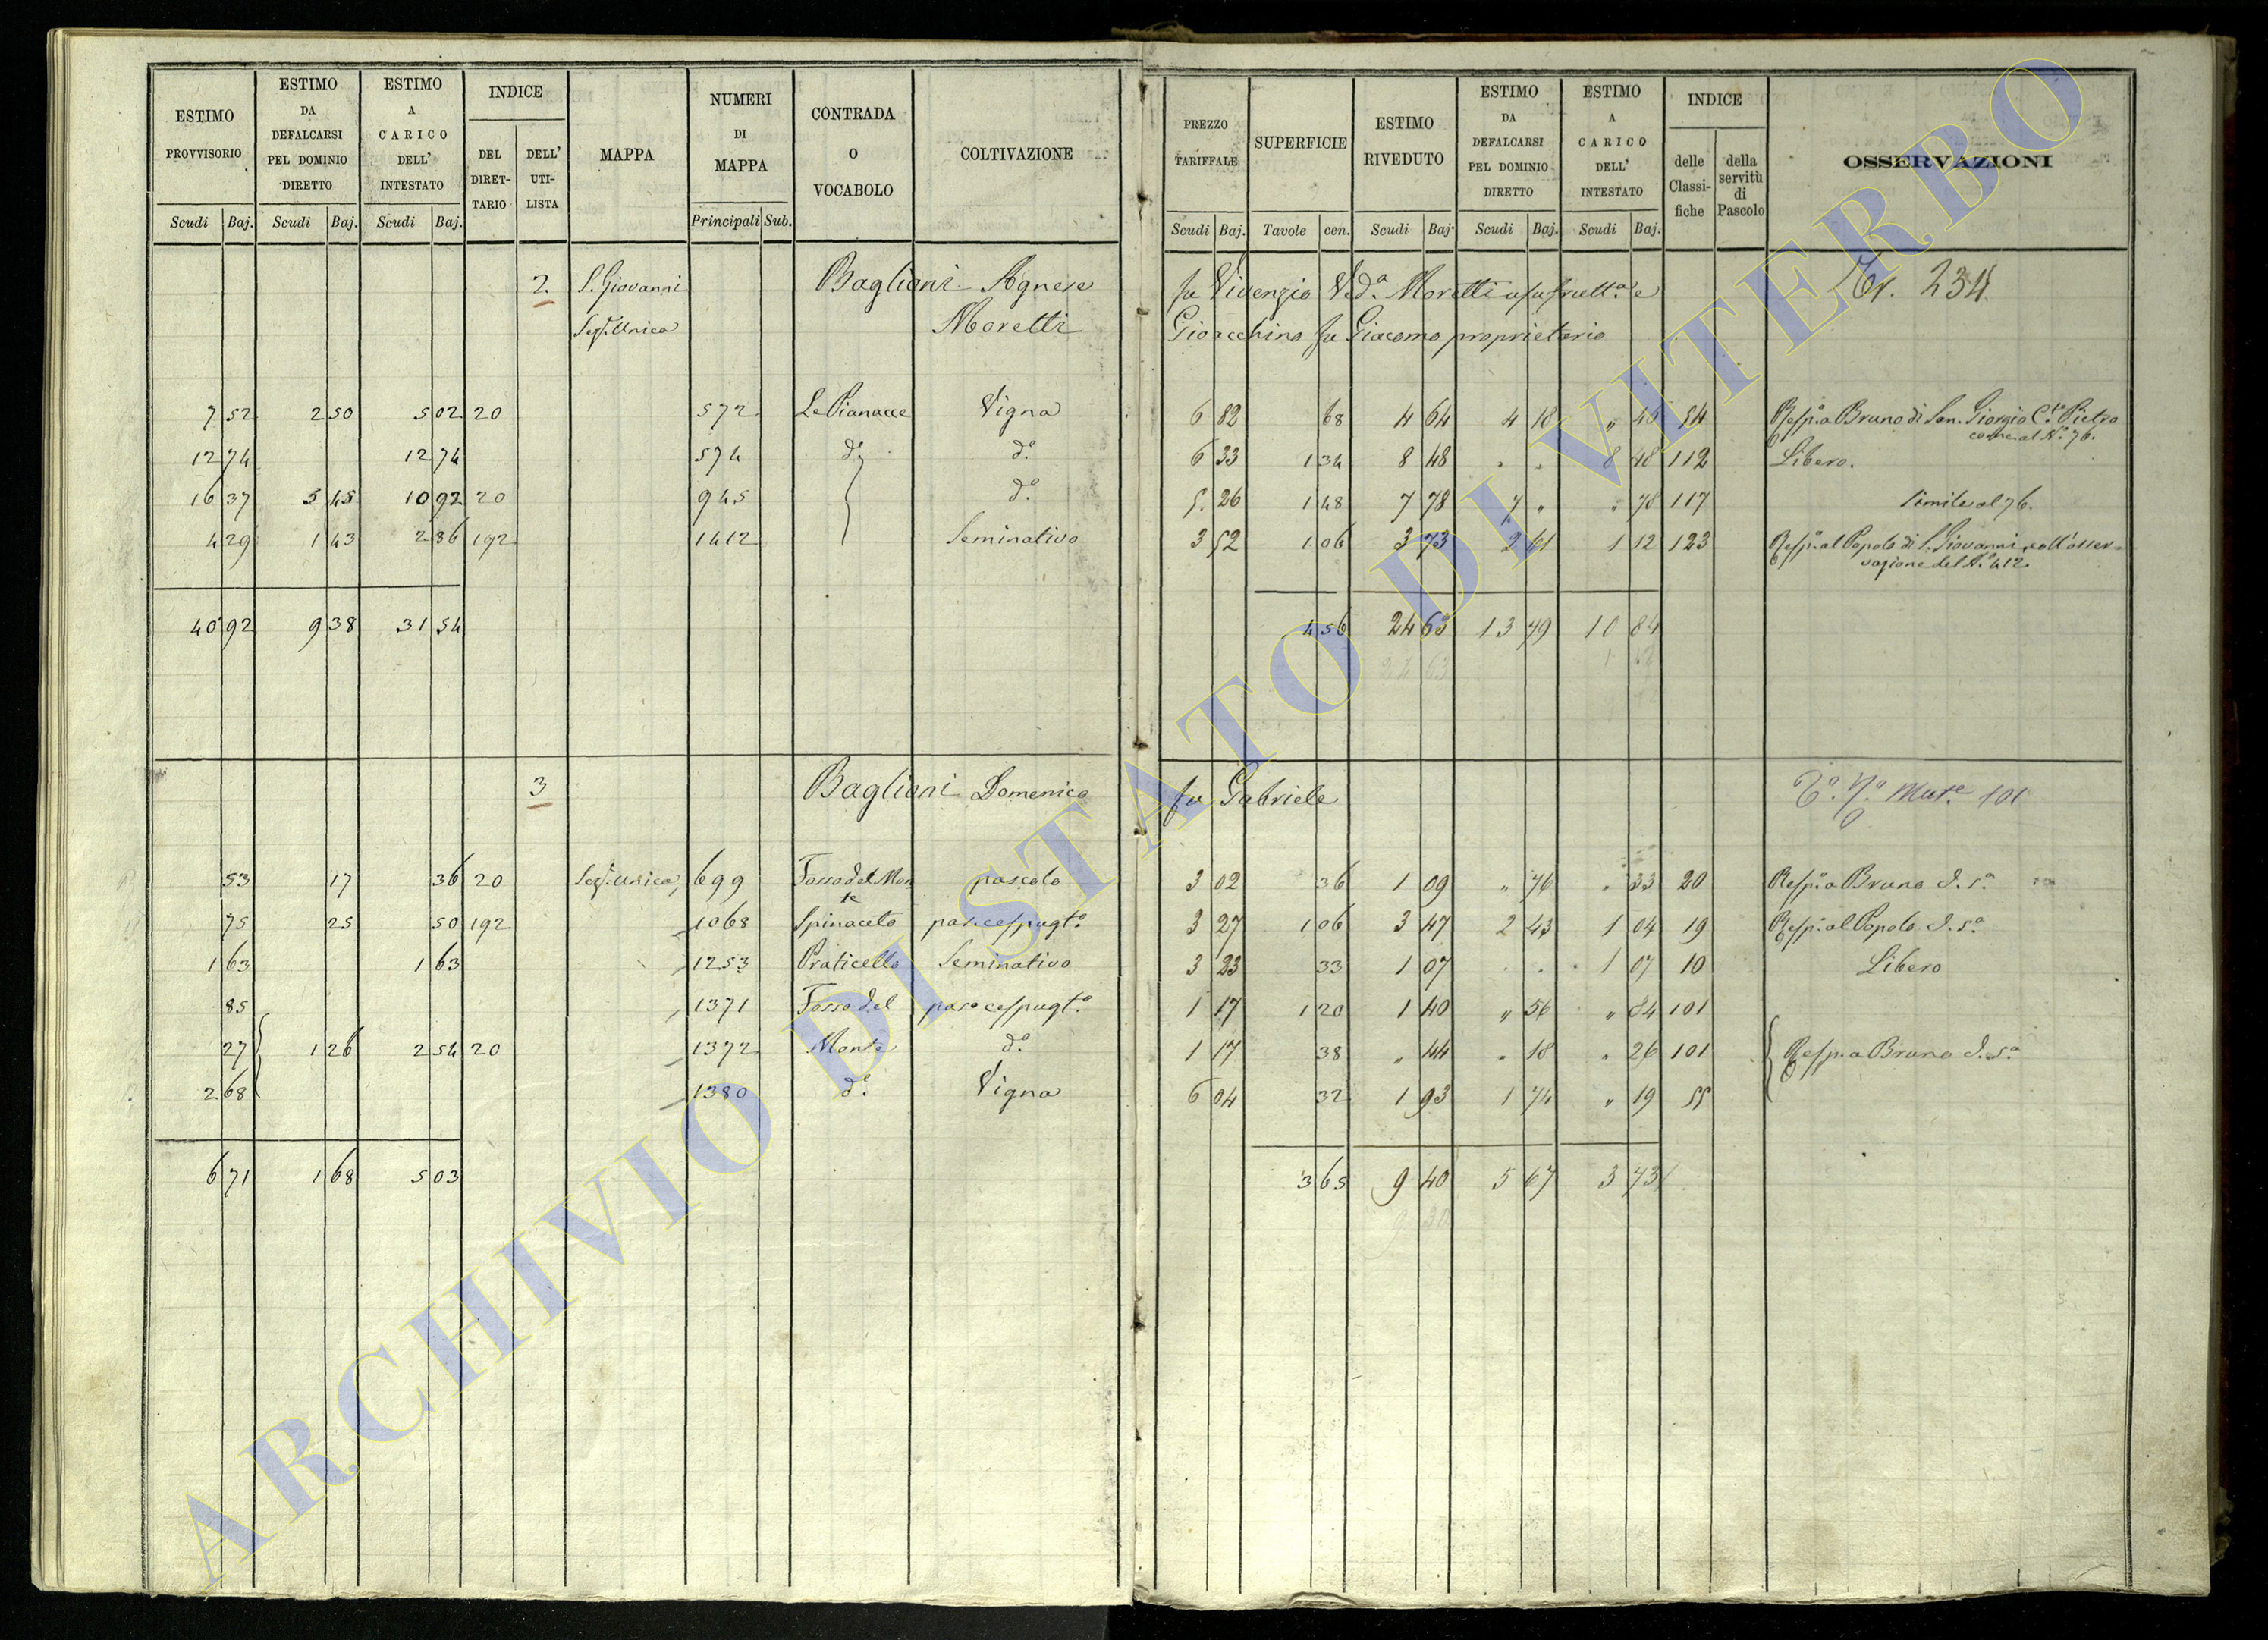 ESTIMO PROVVISORIO | ESTIMO DA DEFALCARSI PEL DOMINIO DIRETTO | ESTIMO A CARICO DELL' INTESTATO | INDICE DEL DIRETTARIO | DELL' UTILISTA | MAPPA | NUMERI DI MAPPA | CONTRADA O VOCABOLO | COLTIVAZIONE | PREZZO TARIFFALE | SUPERFICIE | ESTIMO RIVEDUTO | ESTIMO DA DEFALCARSI PEL DOMINIO DIRETTO | ESTIMO A CARICO DELL' INTESTATO | INDICE delle Classifiche | della servitù di Pascolo | OSSERVAZIONI
Scudi Baj. | Scudi Baj. | Scudi Baj. | Principali Sub. | Scudi Baj. | Tavole cen. | Scudi Baj. | Scudi Baj. | Scudi Baj.
2 S. Giovanni Baglioni Agnese fu Vincenzio Ved.ª Moretti usufrutt.ª e 234
Sez. Unica Moretti Gioacchino fu Giacomo proprietario
7 52 2 50 5 02 20 572 Le Pianacce Vigna 6 82 68 4 64 4 18 „ 46 54 Resp.º a Bruno di San Giorgio C.te Pietro
come al N.º 76.
12 74 12 74 574 d.º d.º 6 33 1 34 8 48 8 48 112 Libero.
16 37 5 45 10 92 20 945 d.º 5 26 1 48 7 78 7 „ „ 78 117 Simile al 76.
4 29 1 43 2 86 192 1412 Seminativo 3 52 1 06 3 73 2 61 1 12 123 Resp.º al Popolo di S. Giovanni coll'osser-
vazione del N.º 412.
40 92 9 38 31 54 4 56 24 63 13 79 10 84
24 63
3 Baglioni Domenico fu Gabriele Mut.e 101
53 17 36 20 Sez. Unica 699 Fosso del Mon pascolo 3 02 36 1 09 „ 76 „ 33 20 Resp.º a Bruno d. s.ª
te
75 25 50 192 1068 Spinaceto pas. cespugt.º 3 27 1 06 3 47 2 43 1 04 19 Resp. al Popolo d. s.ª
1 63 1 63 1253 Praticello Seminativo 3 23 33 1 07 1 07 10 Libero
85 1371 Fosso del pas. cespugt.º 1 17 1 20 1 40 „ 56 „ 84 101
27 1 26 2 54 20 1372 Monte d.º 1 17 38 „ 44 „ 18 „ 26 101 Resp. a Bruno d. s.ª
2 68 1380 d.º Vigna 6 04 32 1 93 1 74 „ 19 55
6 71 1 68 5 03 3 65 9 40 5 67 3 73
ARCHIVIO DI STATO DI VITERBO